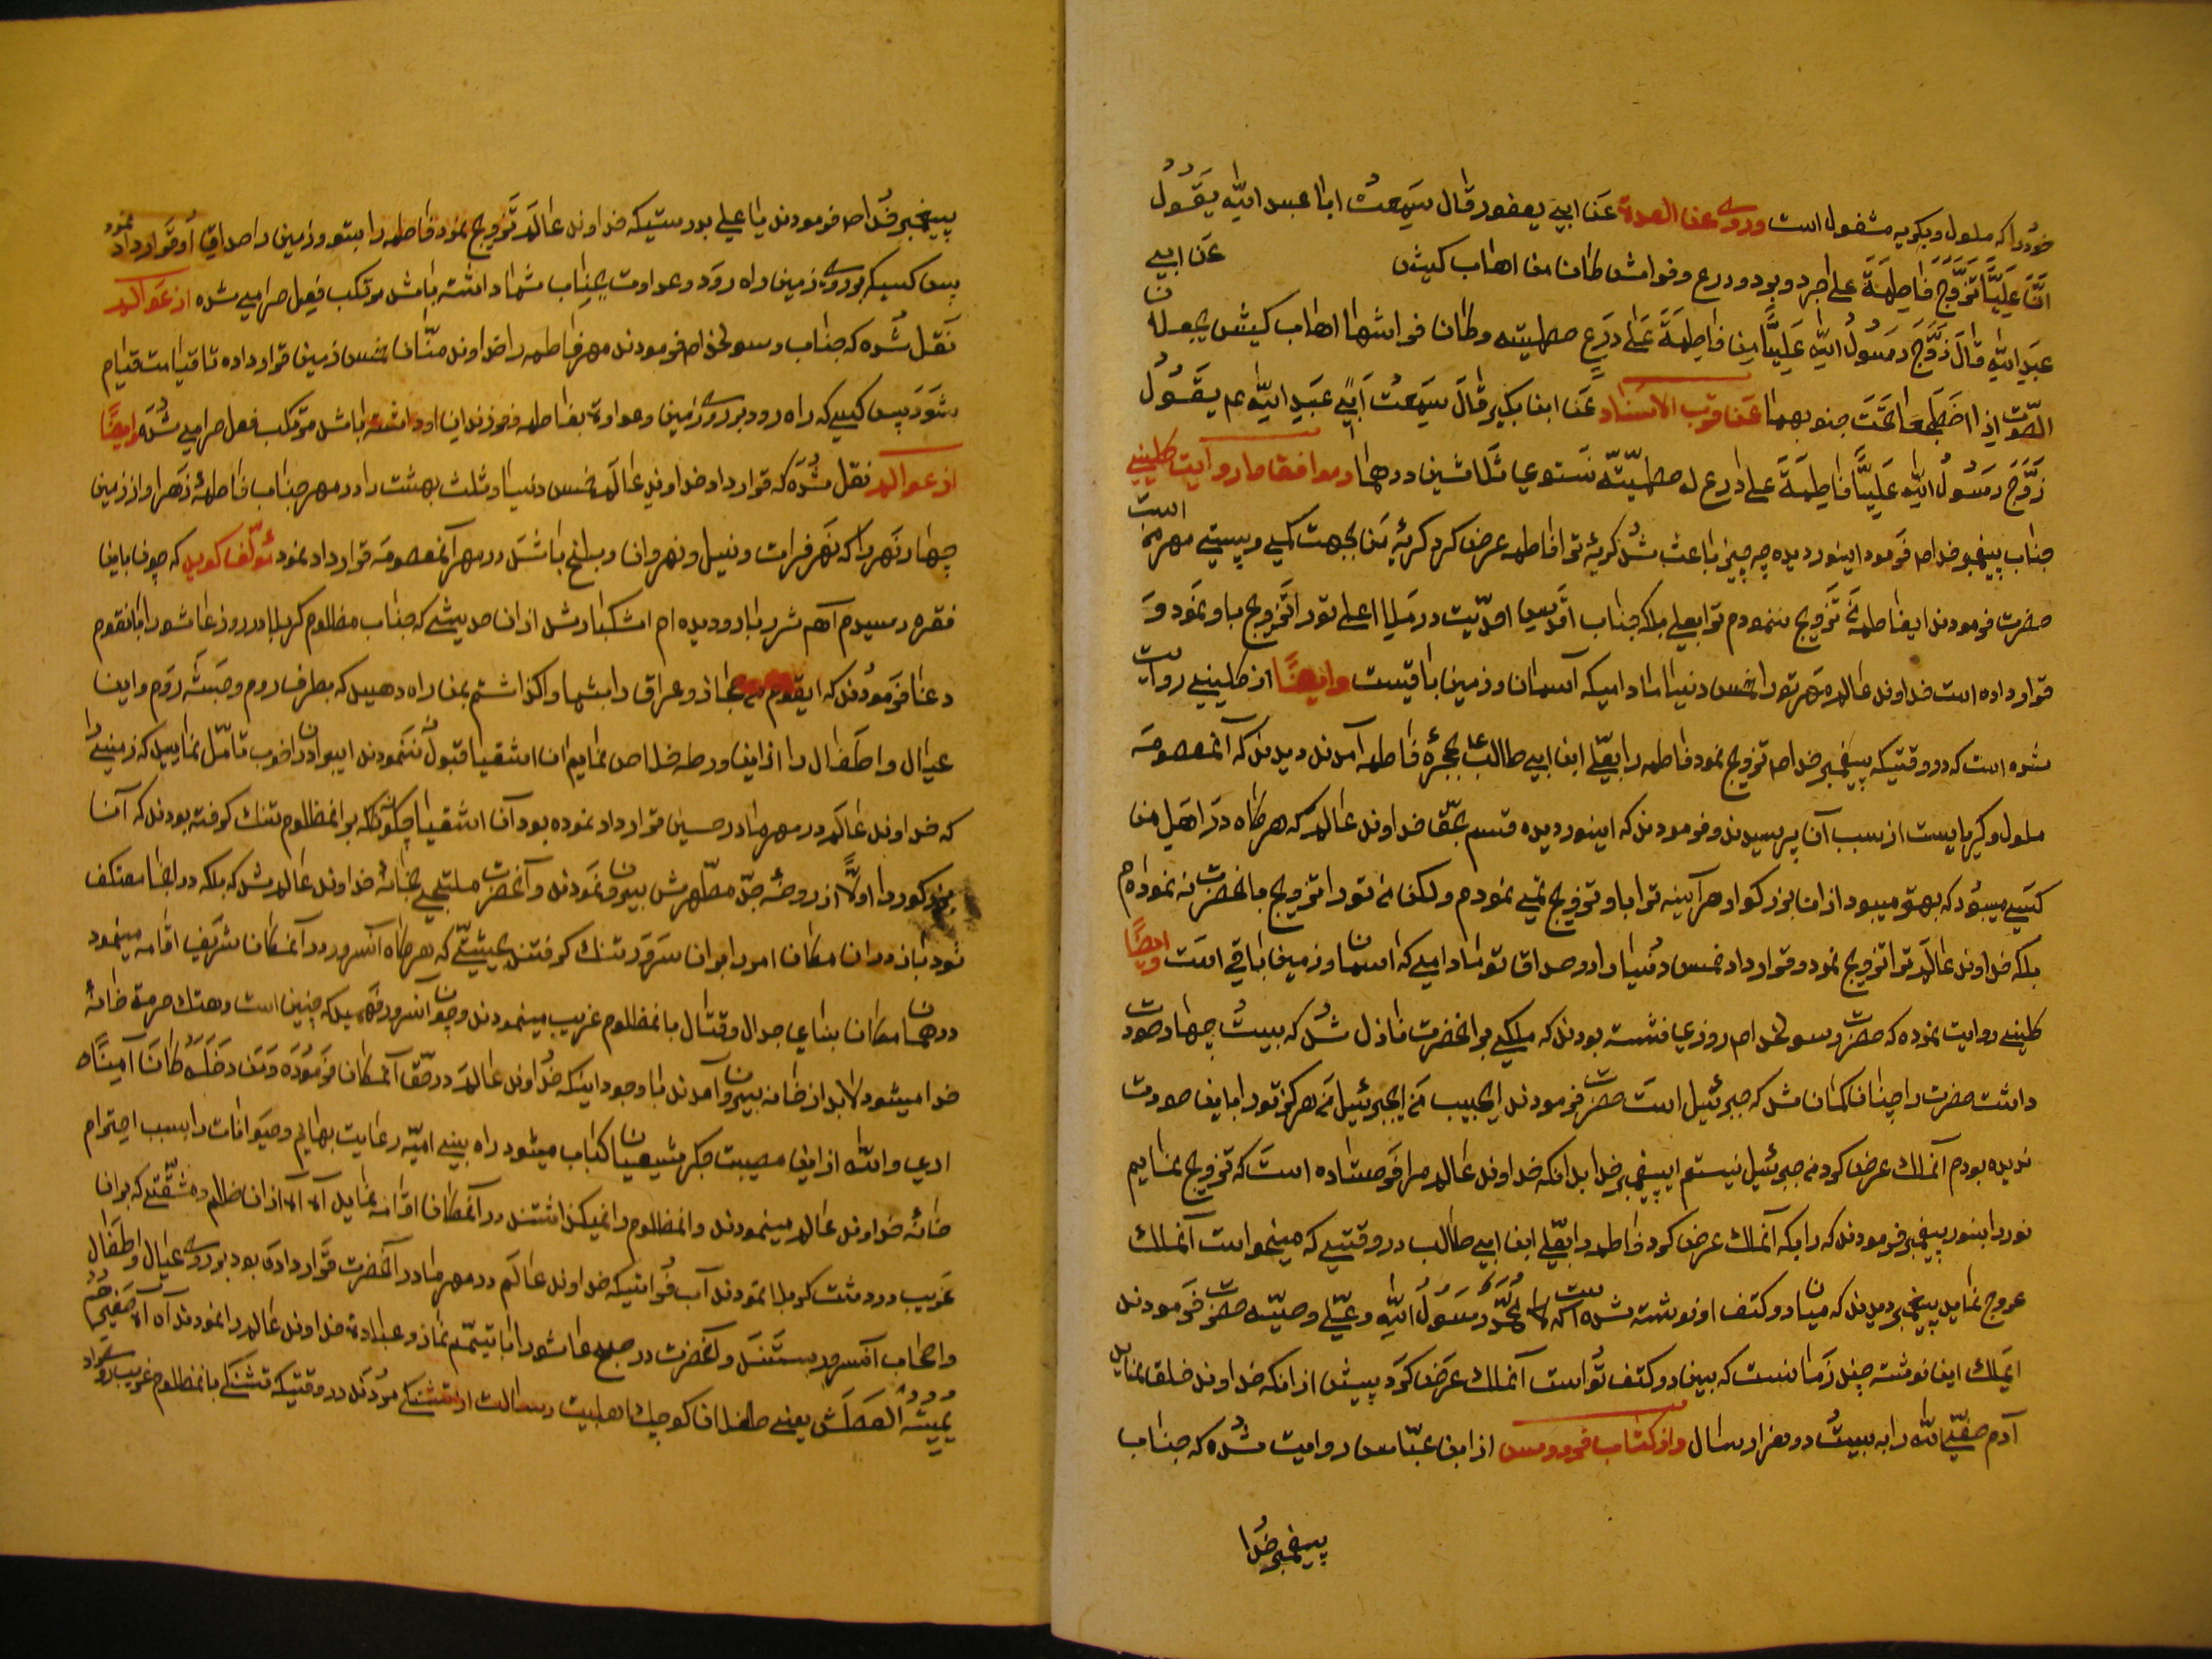 خود را که ملول و بگریه مشغول است وروی عن العدة عَن ابی یعفور قال سَمِعتُ ابا عبد الله یَقُولُ
اَنَّ عَلِیّاً تَزَوَّجَ فَاطِمَةَ علی جرد و برد و درع و فراش کان من اهاب کبش عَن ابی
عَبدِ اللهِ قالَ زَوَّجَ رَسُولُ اللهِ عَلِیّاً فَاطِمَةَ عَلی دِرَعٍ حطمیته و کان فراشها اهاب کبش یجعلان
الصّوف اِذا اضطَجَعا تَحتَ جنوبهما عَن قرب الاسناد عَن ابن بکیر قالَ سَمِعتُ اَبی عَبدِ اللهِ ع یَقُولُ
زَوَّجَ رَسُولُ اللهِ عَلِیّاً فَاطِمَةَ علی درع له حطمیّته تَستوی ثَلاثین درهماً و موافقا ما روایت کلینی است
جناب پیغمبر خدا ص فرمود اینور دیده چه چیز باعث شد گریهٔ ترا فاطمه عرض کرد گریهٔ من بجهت کمی و پستی مهر من
حضرت فرمودند ایفاطمه من تزویج ننمودم ترا بعلی بلکه جناب اقدس احدیّت در ملا اعلی تو را تزویج باو نمود و
قرار داده است خداوند عالم مهر تو را خمس دنیا مادامیکه آسمان و زمین باقیست وایضاً از کلینی روایت
شده است که در وقتیکه پیغمبر خدا ص تزویج نمود فاطمه را بعلی ابن ابی طالب ع بحجرهٔ فاطمه آمدند دیدند که آنمعصومه
ملول و گریه‌ایست از سبب آن پرسیدند و فرمودند که اینور دیده قسم بحقّ خداوند عالم که هرگاه در اهل من
کسی میبود که بهتر میبود از ان بزرگوار هر آینه ترا باو تزویج می نمودم ولکن من تو را تزویج بانحضرت نه نموده‌ام
بلکه خداوند عالم ترا تزویج نمود و قرار داد خمس دنیا را در صداق تو مادامی که اسمان و زمین باقی است وایضاً
کلینی روایت نموده که حضرت رسول خدا ص روزی نشسته بودند که ملکی بر انحضرت نازل شد که بیست چهار صورت
داشت حضرت را چنان گمان شد که جبرئیل است حضرت فرمودند ای حبیب من ای جبرئیل من هرگز تو را باین صورت
ندیده بودم آنملک عرض کرد من جبرئیل نیستم ای پیغمبر خدا بدانکه خداوند عالم مرا فرستاده است که تزویج نمایم
نور را بنور پیغمبر فرمودند که را بکه آنملک عرض کرد فاطمه را بعلی ابن ابی طالب در وقتی که میخواست آنملک
عروج نماید پیغمبر دیدند که میان دو کتف او نوشته شده است که مُحَمَّد رَسُولُ اللهِ و عَلی وصیّه حضرت فرمودند
ایملک این نوشته چند زمانست که بین دو کتف تو است آنملک عرض کرد پیش از انکه خداوند خلق نماید
آدم صفی الله را به بیست دو هزار سال و از کتاب فردوس از ابن عبّاس روایت شده که جناب
پیغمبر خدا
پیغمبر خدا ص فرمودند یا علی بدرستیکه خداوند عالم تزویج نمود فاطمه را بتو و زمین را صداق او قرار داد نمود
پس کسیکه بر روی زمین راه رود و عداوت بجناب شما داشته باشد مرتکب فعل حرامی شده از عوالم
نقل شده که جناب رسولخدا ص فرمودند مهر فاطمه را خداوند منّان خمس زمین قرار داده تا قیامت قیام
شود پس کسی که راه رود بر روی زمین و عداوة بفاطمه و فرزندان او داشته باشد مرتکب فعل حرامی شده وایضاً
از عوالم نقل شده که قرار داد خداوند عالم خمس دنیا و ثلث بهشت را در مهر جناب فاطمهٔ زهرا و از زمین
چهار نهر را که نهر فرات و نیل و نهروان و بلخ باشد در مهر آنمعصومه قرار داد نمود مؤلّف گوید که چون باین
فقره رسیدم آهم شرر بار و دیده ام اشکبار شد از ان حدیثی که جناب مظلوم کربلا در روز عاشورا بانقوم
دغا فرمودند که ایقوم من حجاز و عراق را بشما واگذاشتم بمن راه دهید که بطرف روم و حبشه روم و این
عیال و اطفال را از این ورطه خلاص نمایم ان اشقیا قبول ننمودند ایبرادران خوب تأمّل نمایید که زمینی را
که خداوند عالم در مهر مادر حسین قرار داد نموده بود آن اشقیا چگونه بر انمظلوم تنگ گرفته بودند که آن
بزرگوار را اوّلاً از روضهٔ جدّ مطهّرش بیرون نمودند و آنحضرت ملتجی بخانهٔ خداوند عالم شد که بلکه در انجا معتکف
شود باز در ان مکان امر را بر ان سرور تنگ گرفتند بحیثیّتی که هرگاه آنسرور در آنمکان شریف اقامه مینمود
در همان مکان بنای جدال و قتال بانمظلوم غریب مینمودند و چون آنسرور فهمید که چنین است و هتک حرمة خانهٔ
خدا میشود لابد از خانه بیرون آمدند با وجود اینکه خداوند عالم در حقّ آنمکان فرموده وَمَن دَخَلَهُ کَانَ آمِناً
ای والله از این مصیبت جگر شیعیان کباب میشود راه بینی امیّه رعایت بهایم و حیوانات را بسبب احترام
خانهٔ خداوند عالم مینمودند و انمظلوم را نمیگذاشتند در آنمکان اقامه نماید آه آه از ان ظلم و مشقّتی که بر ان
غریب در دشت کربلا نمودند آب فراتیکه خداوند عالم در مهر مادر آنحضرت قرار داده بود بر روی عیال و اطفال
و اصحاب آنسرور بستند و آنحضرت در صبح عاشورا با تیمّم نماز و عبادة خداوند عالم را نمودند آه آه صَغیرُهُم
یُمیتُهُ العَطَش یعنی طفلان کوچک اهلبیت رسالت از تشنگی مردند در وقتیکه تشنگی بانمظلوم غریب رو آورد